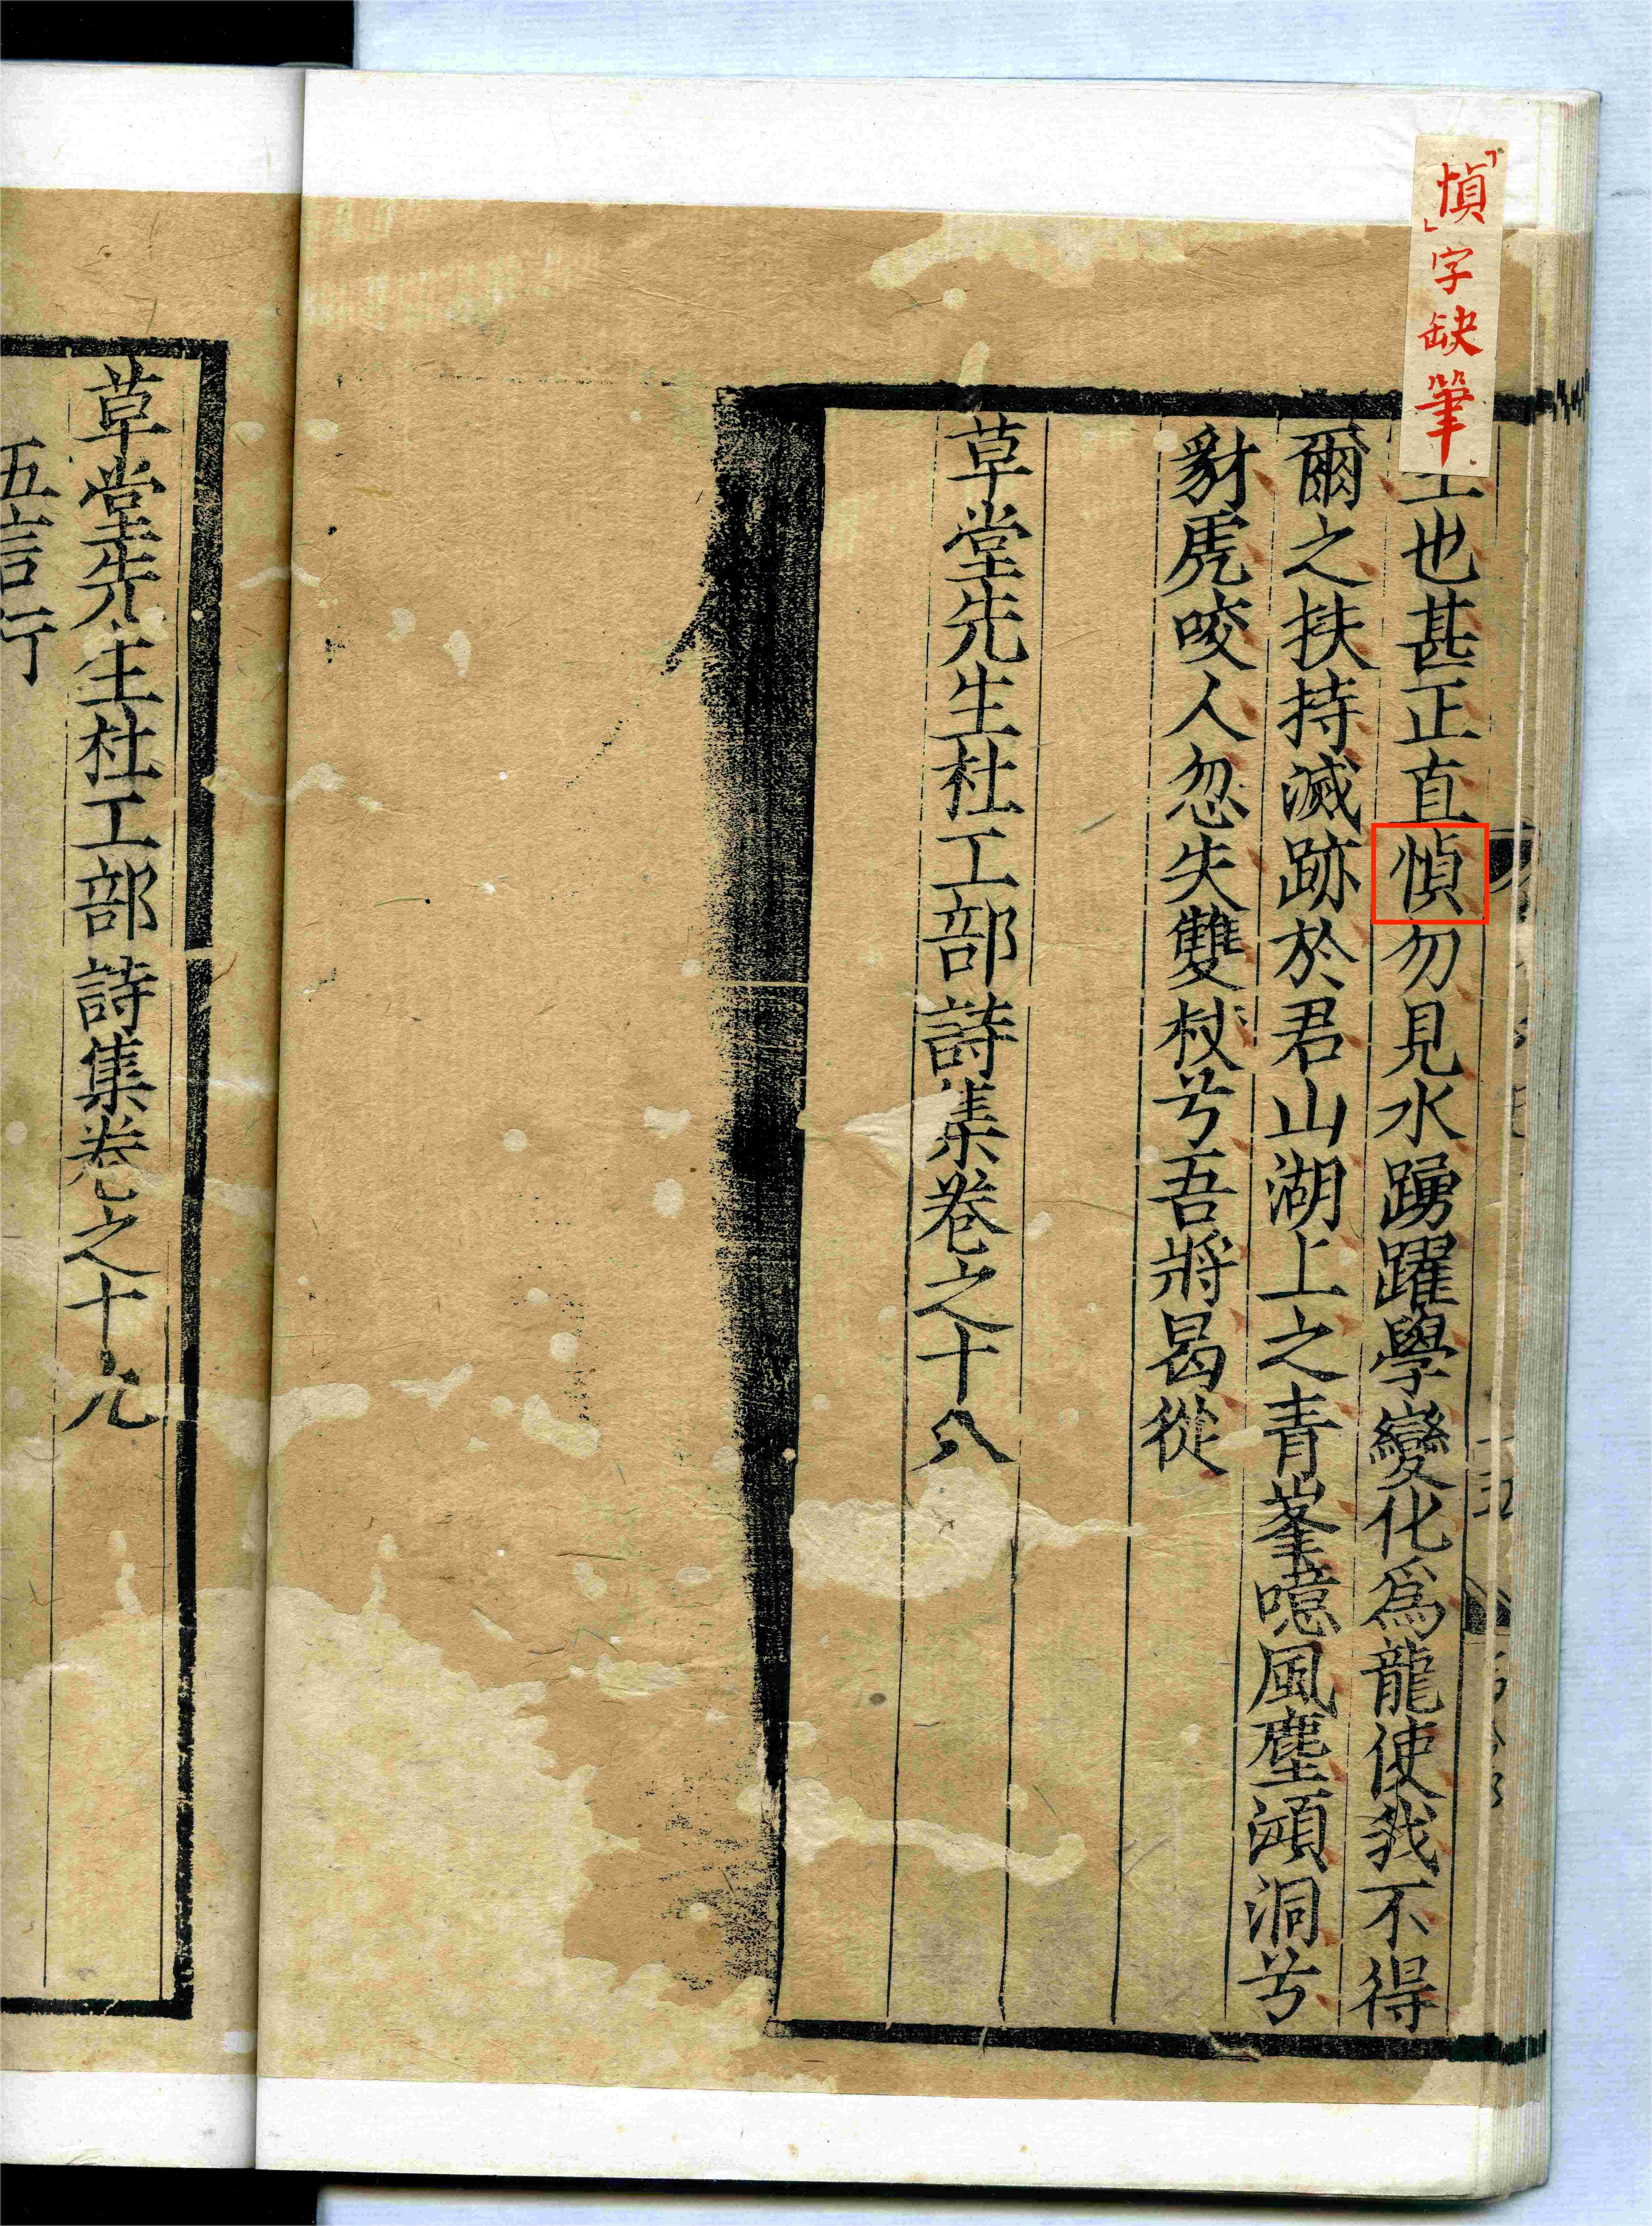 「慎」字缺筆
也甚正直慎勿見水踴躍學變化爲龍使我不得
爾之扶持滅跡於君山湖上之青峯噫風塵澒洞兮
豺虎咬人忽失雙杖兮吾將曷從
草堂先生杜工部詩集卷之十八
草堂先生杜工部詩集卷之十九
五言行